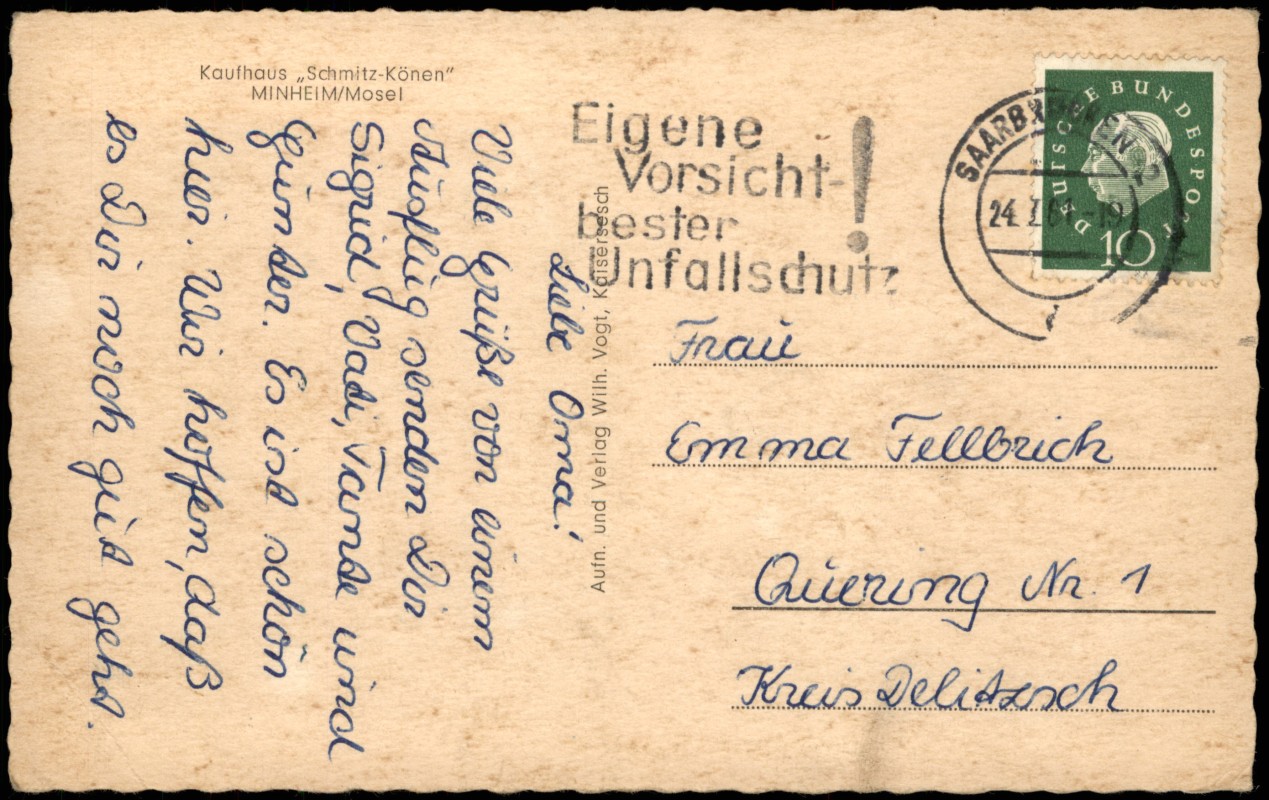 Kaufhaus „Schmitz-Könen"
MINHEIM/Mosel
Liebe Oma!
Viele Grüße von einem
Ausflug senden Dir
Sigrid, Vati, Tante und
Günter. Es ist schön
hier. Wir hoffen, daß
es Dir noch gut geht.
Aufn. und Verlag Wilh. Vogt, Kaisersesch
Eigene
Vorsicht-
bester
Unfallschutz
!
SAARBRÜCKEN 2
24.7.61-19
DEUTSCHE BUNDESPOST
10
Frau
Emma Fellbrich
Quering Nr. 1
Kreis Delitzsch